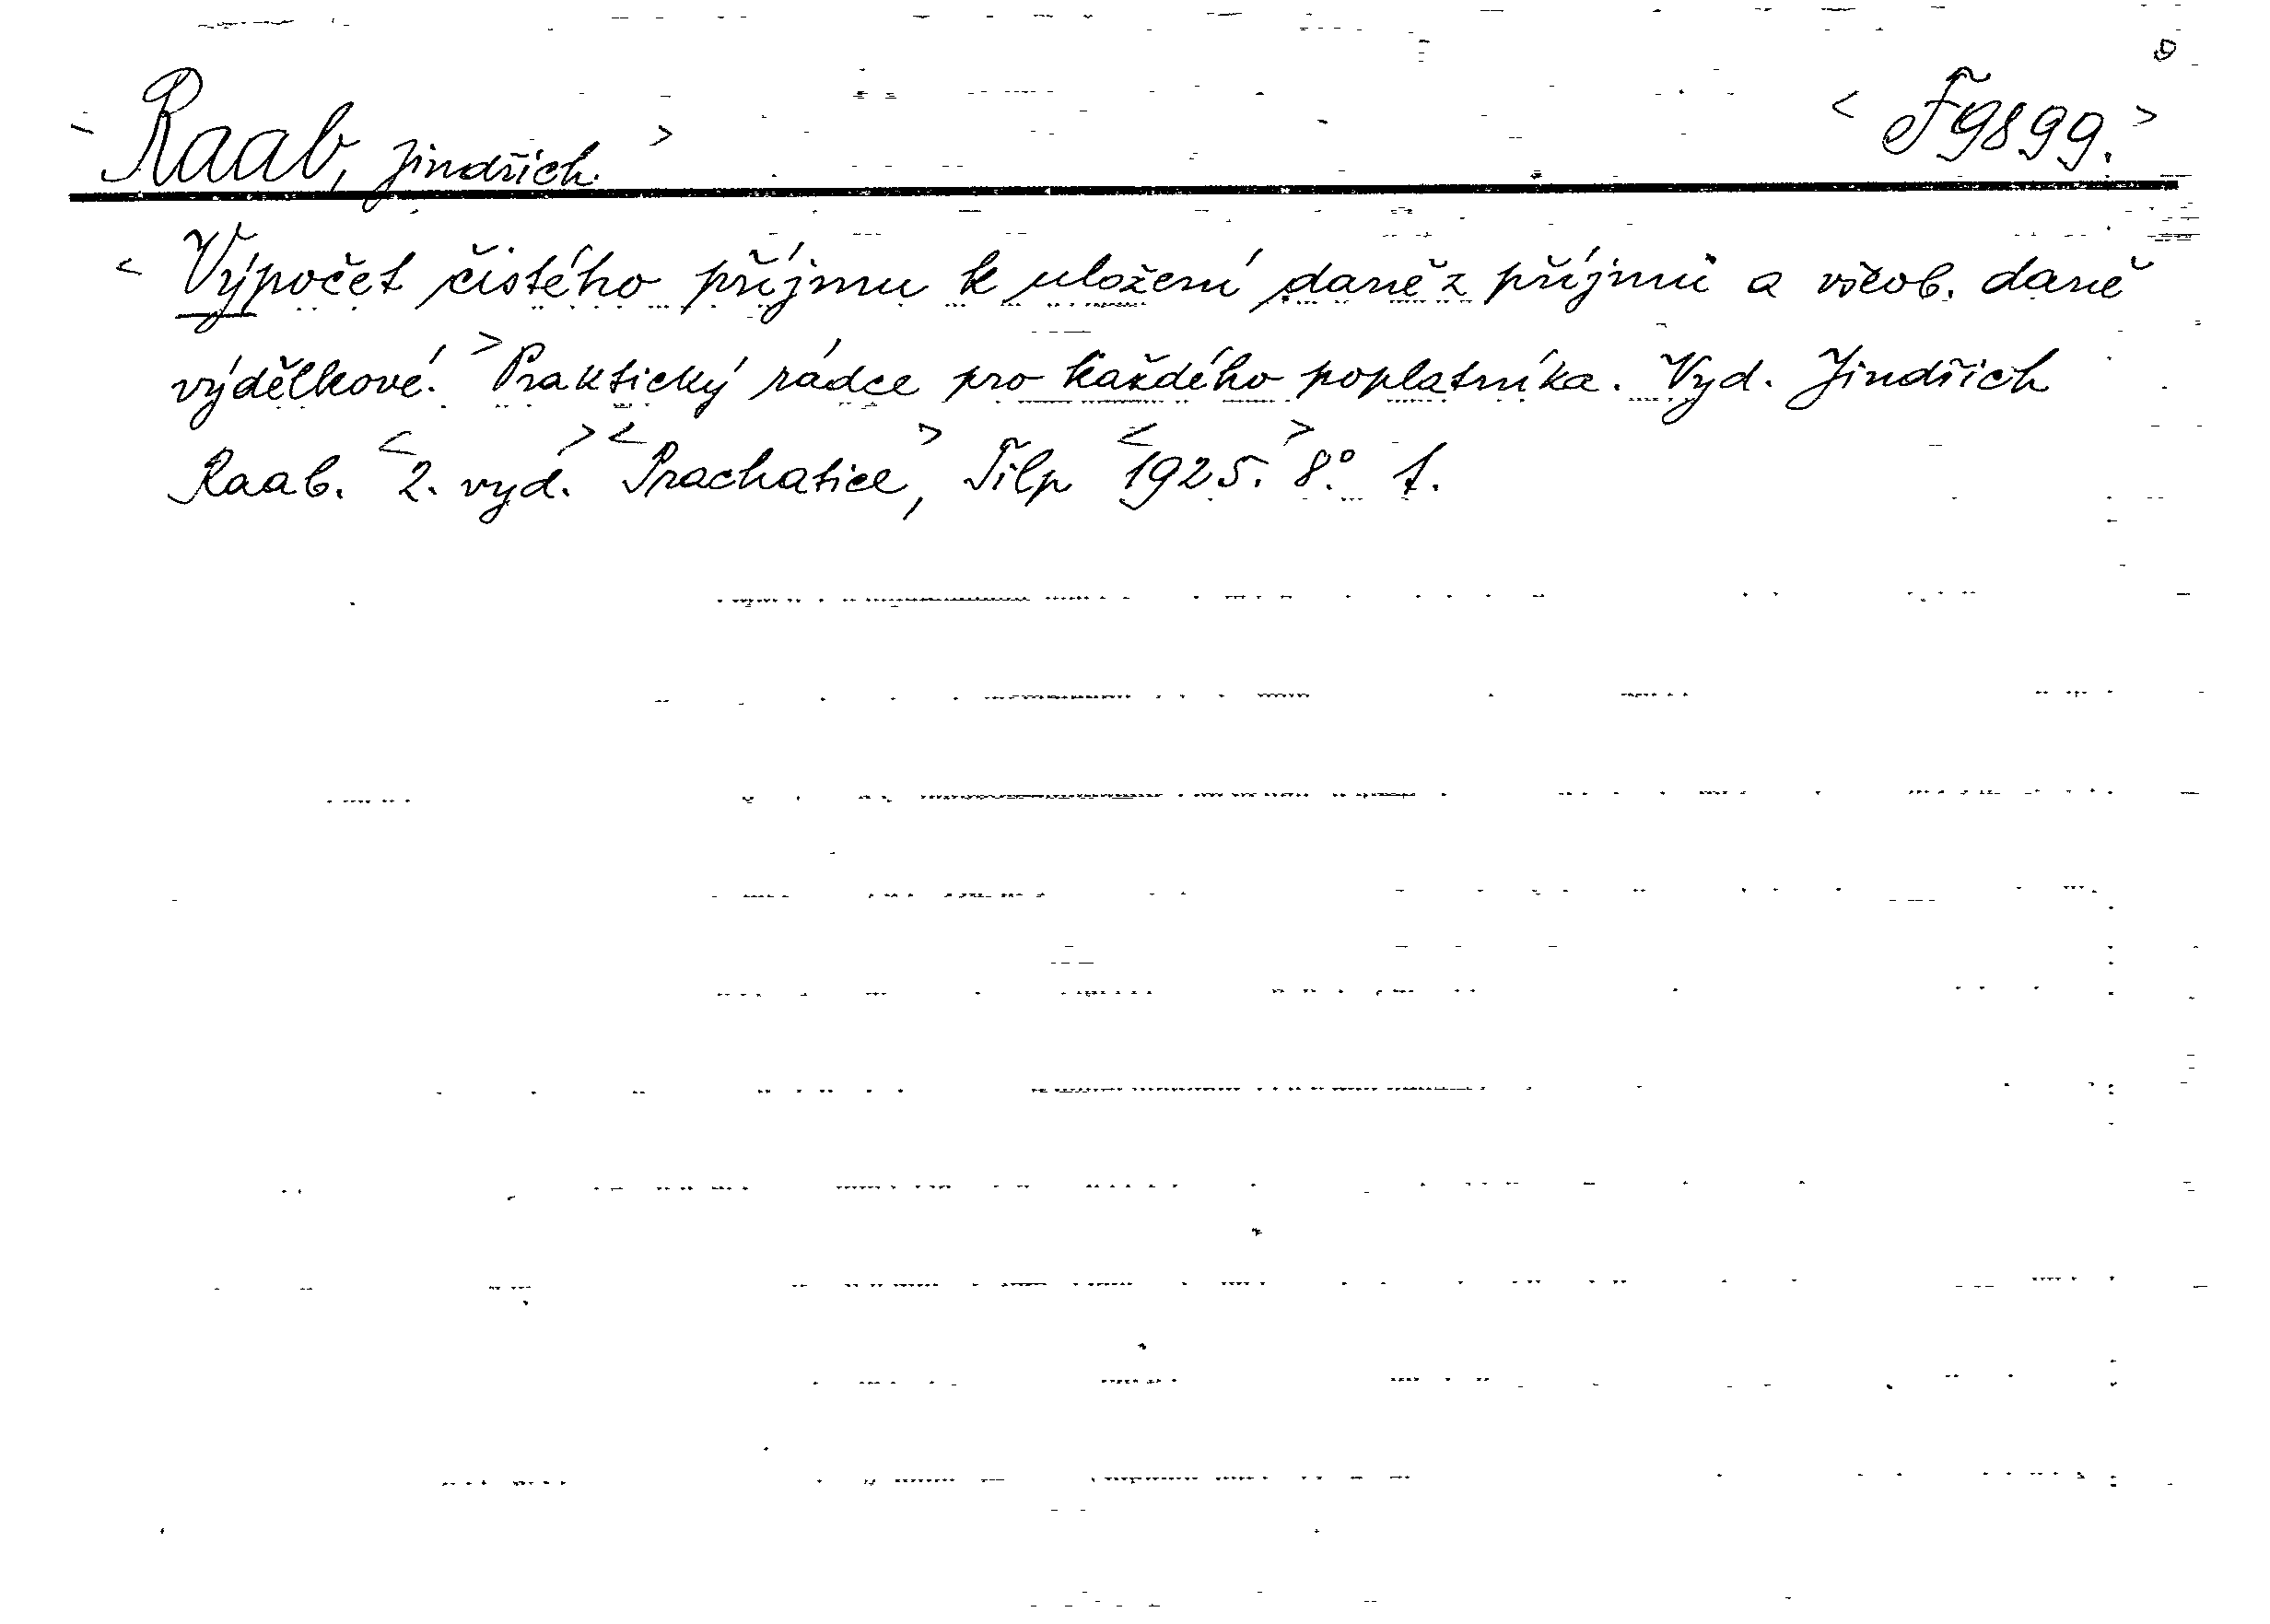 < Raab, Jindřich. > < F9899. >
< Výpočet čistého příjmu k uložení daně z příjmů a všeob. daně
výdělkové. > Praktický rádce pro každého poplatníka. Vyd. Jindřich
Raab. < 2. vyd. > < Prachatice, > Tilp < 1925. > 8° 1.